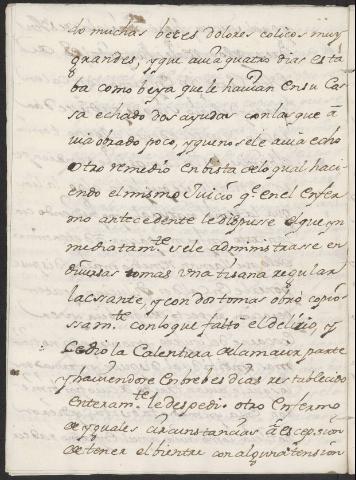 do muchas beces dolores colicos muy
grandes; y que avia quatro dias esta
ba como beya que le havian en su Ca
sa echado dos ayudas con las que a
via obrado poco, y que no se le avia echo
otro remedio en bista de lo qual haci
endo el mismo Juicio qe. en el Enfer
mo antecedente le dispuse el que yn
mediatamte. se le administrase en
diversas tomas una tisana regular
lacsante, y con dos tomas obró copio
ssamte. con lo que faltó el delirio, y
cedio la Calentura de la maior parte
y haviendose en brebes dias restablecido
enteramte. le despedi. otro Enfermo
de yguales circunstancias á escepcion
de tener el bientre con alguna tension